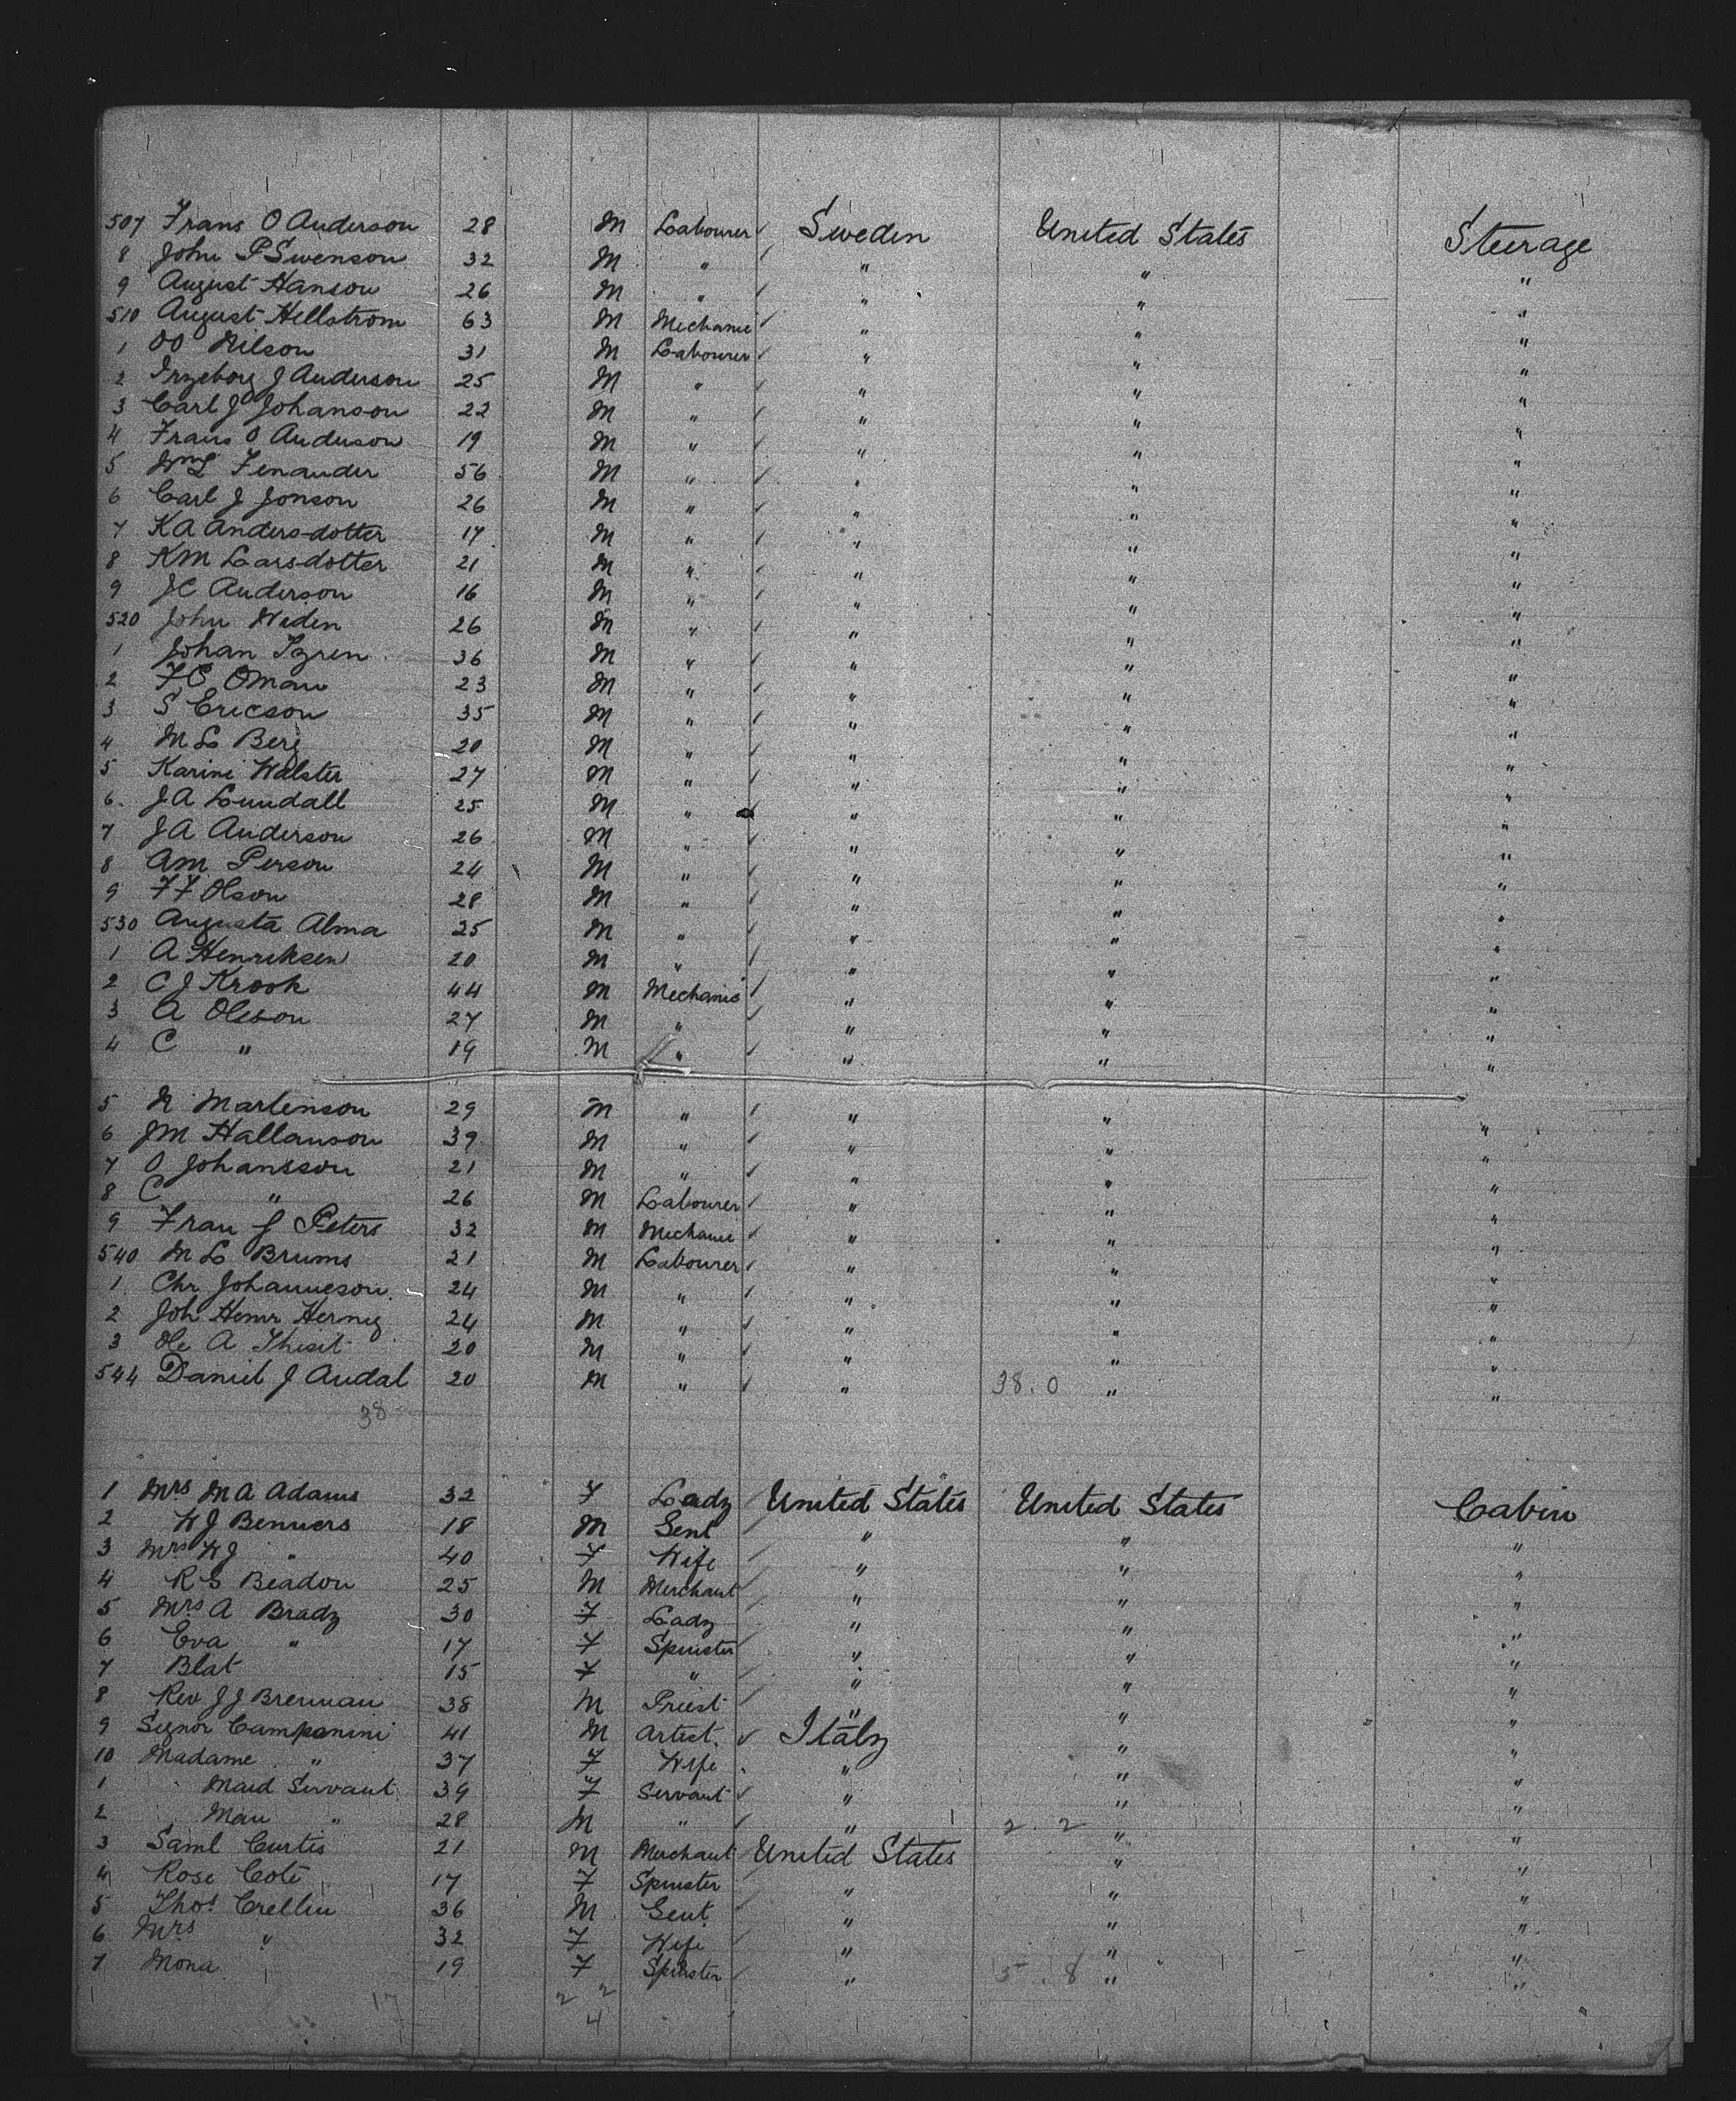 507 Frans O Anderson 28 M Labourer Sweden United States Steerage
8 John P Swenson 32 M " " " "
9 August Hanson 26 M " " " "
510 August Hellstrom 63 M Mechanic " " "
1 OO Nilson 31 M Labourer " " "
2 Ingeborg J Anderson 25 M " " " "
3 Carl J Johanson 22 M " " " "
4 Frans O Anderson 19 M " " " "
5 Wm L Fenander 56 M " " " "
6 Carl J Jonson 26 M " " " "
7 KA Andersdotter 17 M " " " "
8 KM Larsdotter 21 M " " " "
9 JC Anderson 16 M " " " "
520 John Widen 26 M " " " "
1 Johan 36 M " " " "
2 FO Oman 23 M " " " "
3 S Ericson 35 M " " " "
4 M L Berg 20 M " " " "
5 Karini Walster 27 M " " " "
6 JA Lundall 25 M " " " "
7 JA Anderson 26 M " " " "
8 AM Person 24 M " " " "
9 FF Olson 28 M " " " "
530 Augusta Alma 25 M " " " "
1 A Henriksen 20 M " " " "
2 C J Krook 44 M Mechanic " " "
3 A Oleson 27 M " " " "
4 C " 19 M " " " "
5 N Martenson 29 M " " " "
6 JM Hallanson 39 M " " " "
7 O Johansson 21 M " " " "
8 C " 26 M Labourer " " "
9 Fran J Peters 32 M Mechanic " " "
540 M L Brums 21 M Labourer " " "
1 Chr Johanneson 24 M " " " "
2 Joh Henr 24 M " " " "
3 Ole A 20 M " " " "
544 Daniel J Audal 20 M " " 38.0 " "
38
1 Mrs M A Adams 32 F Lady United States United States Cabin
2 W J Benners 18 M Gent " " "
3 Mrs W J " 40 F Wife " " "
4 R S Beadon 25 M Merchant " " "
5 Mrs A Brady 30 F Lady " " "
6 Eva " 17 F Spinster " " "
7 Blat 15 F " " " "
8 Rev J J Brennan 38 M Priest " " "
9 Signor Campanini 41 M Artist Italy " "
10 Madame " 37 F Wife " " "
1 Maid Servant 39 F Servant " " "
2 Man " 28 M " " 2.2 " "
3 Saml Curtis 21 M Merchant United States " "
4 Rose Cote 17 F Spinster " " "
5 Thos Crellin 36 M Gent " " "
6 Mrs " 32 F Wife " " "
7 Mona 19 F Spinster " 5.8 " "
17 2 2
4